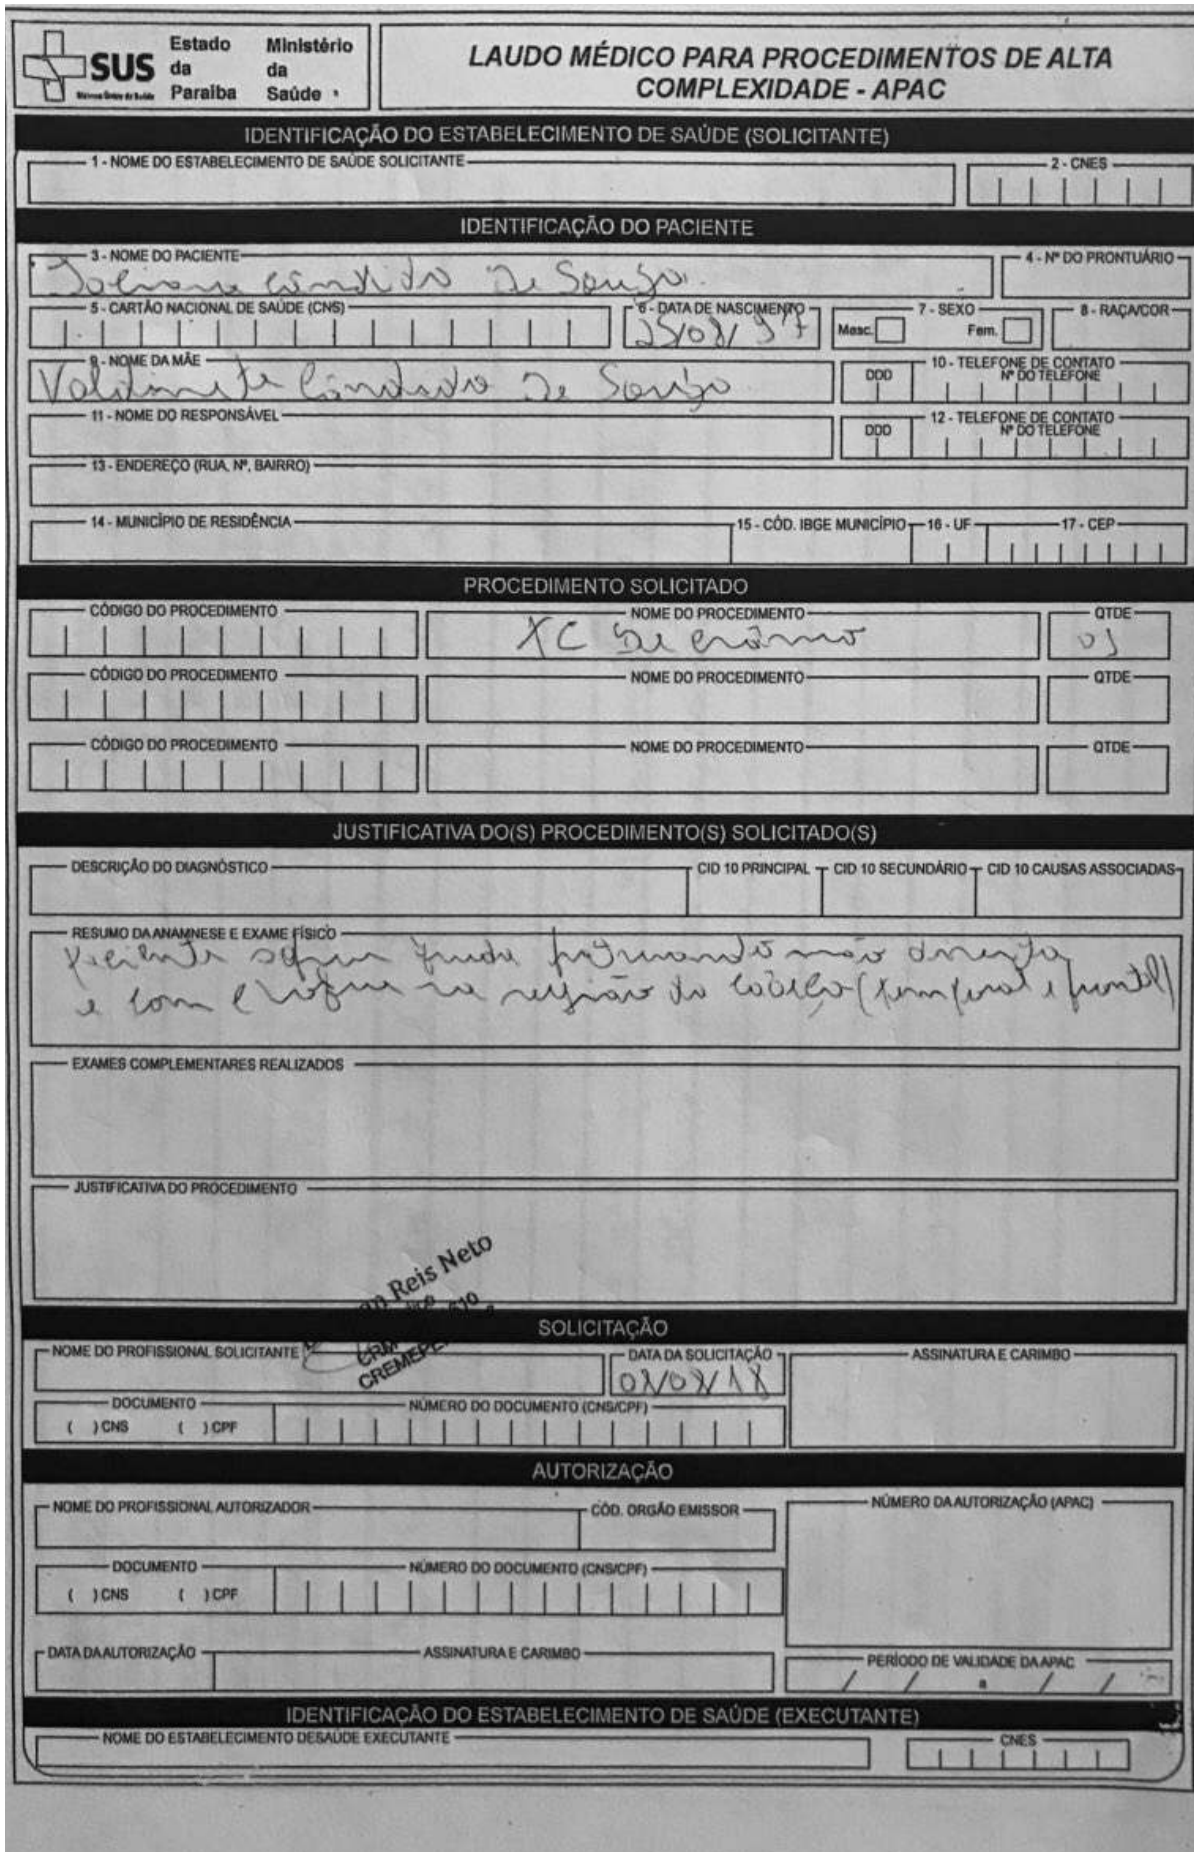 SUS
Sistema Único de Saúde
Estado da Paraiba
Ministério da Saúde
LAUDO MÉDICO PARA PROCEDIMENTOS DE ALTA
COMPLEXIDADE - APAC
IDENTIFICAÇÃO DO ESTABELECIMENTO DE SAÚDE (SOLICITANTE)
1 - NOME DO ESTABELECIMENTO DE SAÚDE SOLICITANTE
2 - CNES
IDENTIFICAÇÃO DO PACIENTE
3 - NOME DO PACIENTE
4 - Nº DO PRONTUÁRIO
Cândido De Souza
5 - CARTÃO NACIONAL DE SAÚDE (CNS)
6 - DATA DE NASCIMENTO
7 - SEXO
8 - RAÇA/COR
25/08/97
Masc.
Fem.
9 - NOME DA MÃE
10 - TELEFONE DE CONTATO
DDD
Nº DO TELEFONE
Cândido De Souza
11 - NOME DO RESPONSÁVEL
12 - TELEFONE DE CONTATO
DDD
Nº DO TELEFONE
13 - ENDEREÇO (RUA, Nº, BAIRRO)
14 - MUNICÍPIO DE RESIDÊNCIA
15 - CÓD. IBGE MUNICÍPIO
16 - UF
17 - CEP
PROCEDIMENTO SOLICITADO
CÓDIGO DO PROCEDIMENTO
NOME DO PROCEDIMENTO
QTDE
TC De crânio
01
CÓDIGO DO PROCEDIMENTO
NOME DO PROCEDIMENTO
QTDE
CÓDIGO DO PROCEDIMENTO
NOME DO PROCEDIMENTO
QTDE
JUSTIFICATIVA DO(S) PROCEDIMENTO(S) SOLICITADO(S)
DESCRIÇÃO DO DIAGNÓSTICO
CID 10 PRINCIPAL
CID 10 SECUNDÁRIO
CID 10 CAUSAS ASSOCIADAS
RESUMO DA ANAMNESE E EXAME FÍSICO
paciente não direita
e com na região da cabeça (temporal e frontal)
EXAMES COMPLEMENTARES REALIZADOS
JUSTIFICATIVA DO PROCEDIMENTO
Reis Neto
CREMEPE
SOLICITAÇÃO
NOME DO PROFISSIONAL SOLICITANTE
DATA DA SOLICITAÇÃO
ASSINATURA E CARIMBO
DOCUMENTO
NÚMERO DO DOCUMENTO (CNS/CPF)
( ) CNS
( ) CPF
AUTORIZAÇÃO
NOME DO PROFISSIONAL AUTORIZADOR
CÓD. ORGÃO EMISSOR
NÚMERO DA AUTORIZAÇÃO (APAC)
DOCUMENTO
NÚMERO DO DOCUMENTO (CNS/CPF)
( ) CNS
( ) CPF
DATA DA AUTORIZAÇÃO
ASSINATURA E CARIMBO
PERÍODO DE VALIDADE DA APAC
/ / a / /
IDENTIFICAÇÃO DO ESTABELECIMENTO DE SAÚDE (EXECUTANTE)
NOME DO ESTABELECIMENTO DESAÚDE EXECUTANTE
CNES